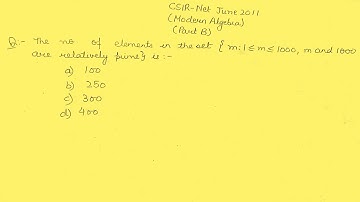 CSIR-Net June 2011
(Modern Algebra)
(Part B)
Q:- The no of elements in the set { m: 1 ≤ m ≤ 1000, m and 1000
are relatively prime} is :-
a) 100
b) 250
c) 300
d) 400